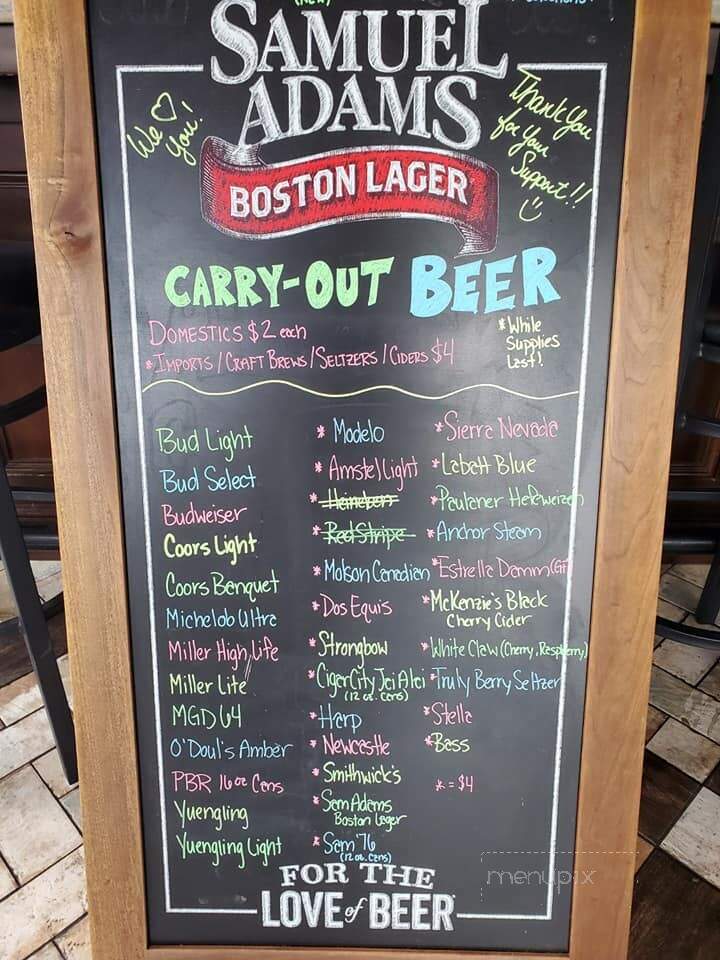 (NEW)
SAMUEL
ADAMS
BOSTON LAGER
We ♡
You!
Thank You
for Your
Support!!
CARRY-OUT BEER
DOMESTICS $2 each
*IMPORTS / CRAFT BREWS / SELTZERS / CIDERS $4
*While
Supplies
Last!
Bud Light
Bud Select
Budweiser
Coors Light
Coors Banquet
Michelob Ultra
Miller High Life
Miller Lite
MGD 64
O'Doul's Amber
PBR 16oz Cans
Yuengling
Yuengling Light
* Modelo
* Amstel Light
* Heineken
* Red Stripe
* Molson Canadian
* Dos Equis
* Strongbow
* Cigar City Jai Alai
(12 oz. cans)
* Harp
* Newcastle
* Smithwick's
* Sam Adams
Boston Lager
* Sam '76
(12 oz. cans)
*Sierra Nevada
*Labatt Blue
*Paulaner Hefeweizen
*Anchor Steam
*Estrella Damm (GF)
*McKenzie's Black
Cherry Cider
*White Claw (Cherry, Raspberry)
*Truly Berry Seltzer
*Stella
*Bass
* = $4
FOR THE
LOVE of BEER
menupix